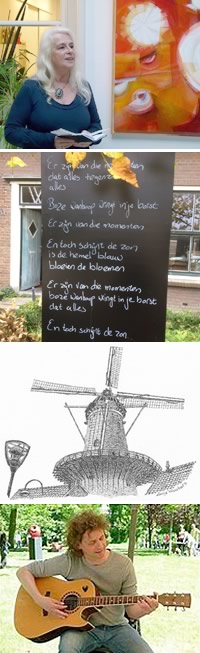 Er zijn van die momenten
dat alles tegen
alles
Boze wanhoop wringt in je borst
Er zijn van die momenten
En toch schijnt de zon
is de hemel blauw
bloeien de bloemen
Er zijn van die momenten
boze wanhoop wringt in je borst
dat alles
En toch schijnt de zon